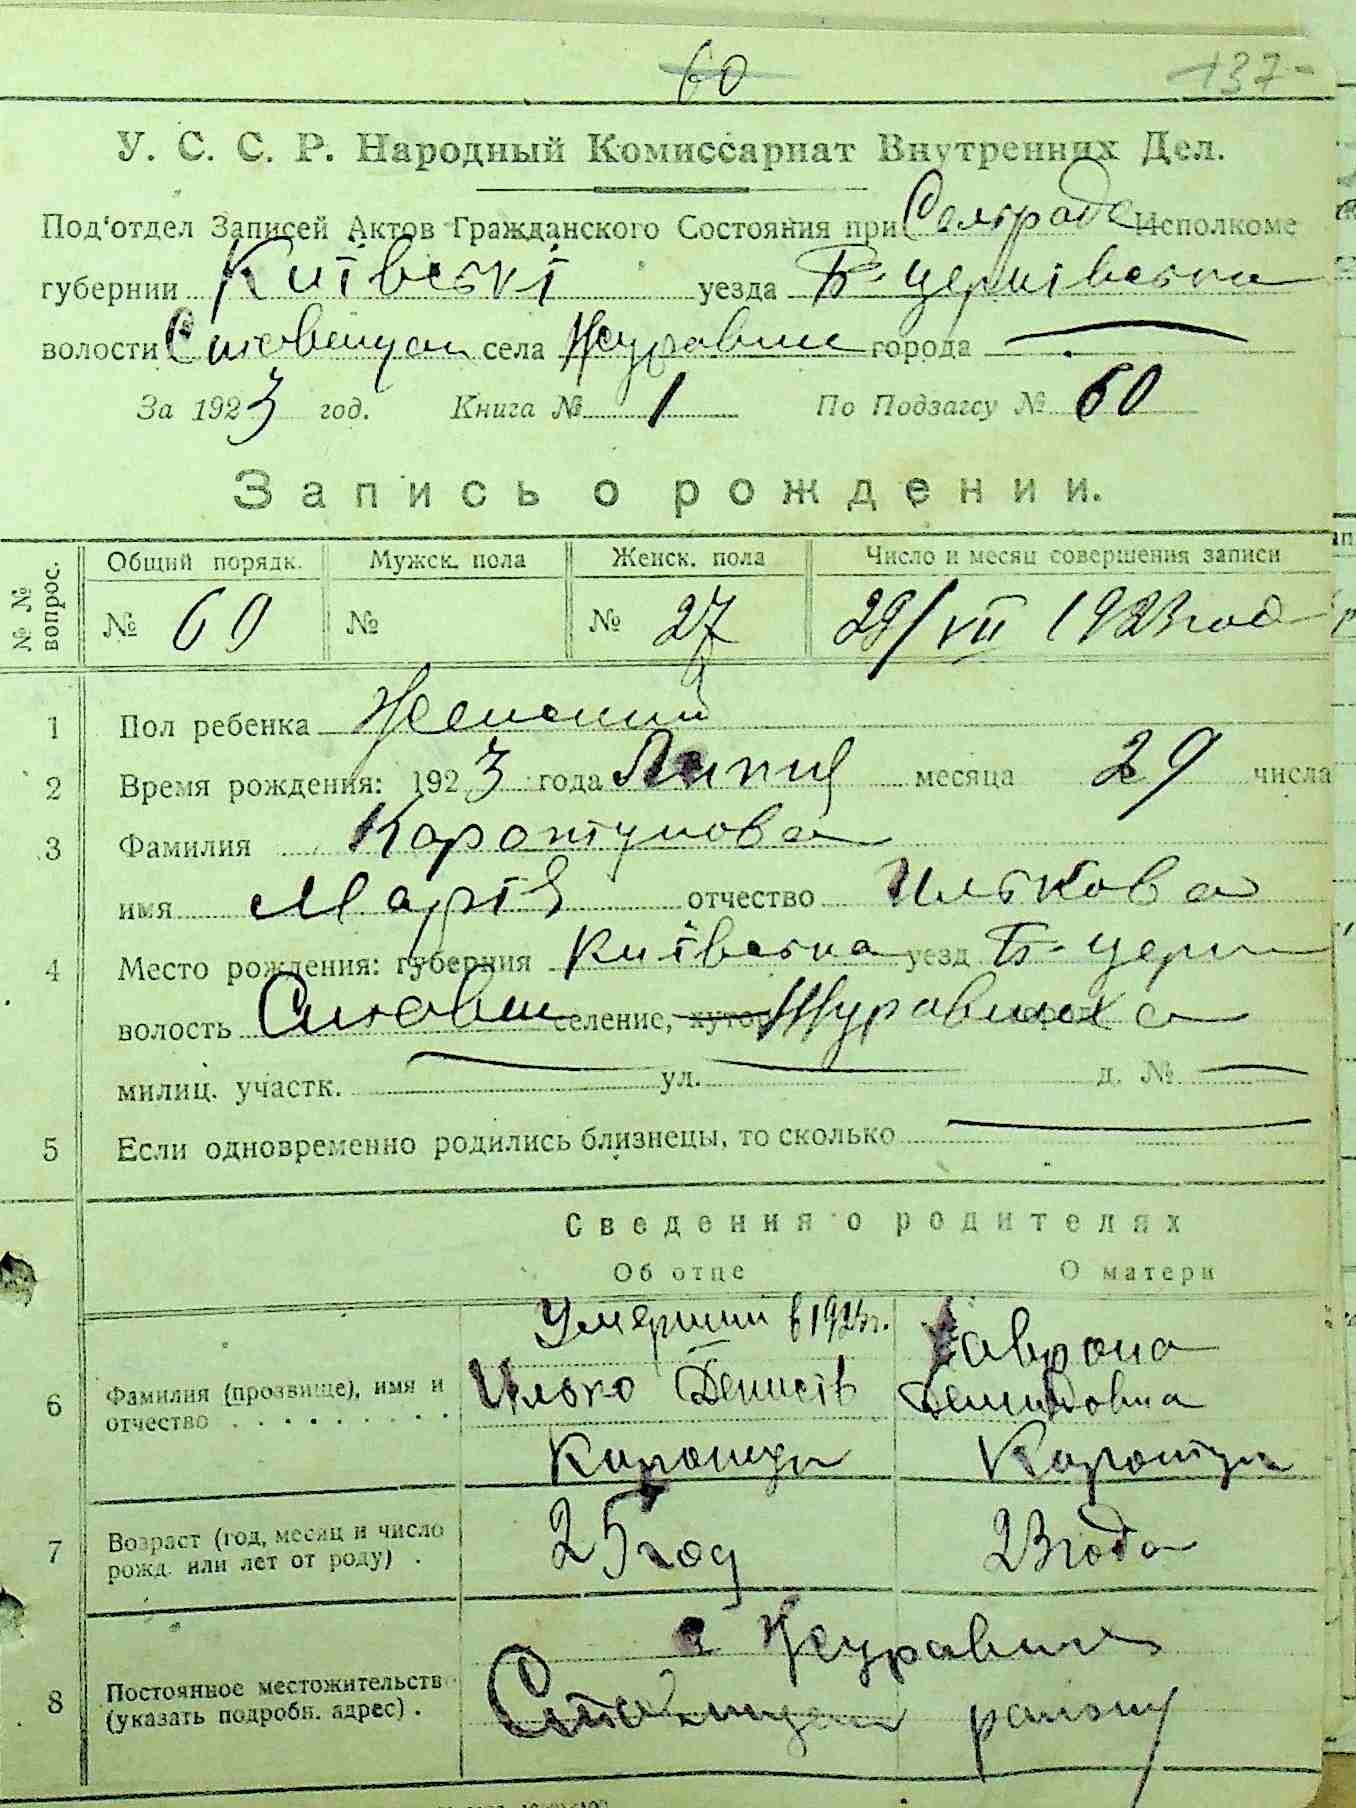 60 137-
У. С. С. Р. Народный Комиссариат Внутренних Дел.
Под'отдел Записей Актов Гражданского Состояния при Сельраде Исполкоме
губернии Київскі уезда Б-церківська
волости села Журавлихе города
За 1923 год. Книга № 1 По Подзагсу № 60
Запись о рождении.
№ № вопрос. Общий порядк. Мужск. пола Женск. пола Число и месяц совершения записи
№ 60 № № 27 29/VII 1923 год
1 Пол ребенка Женский
2 Время рождения: 1923 года Липця месяца 29 числа
3 Фамилия Каротунова
имя Марія отчество Илькова
4 Место рождения: губерния Київська уезд Б-церк
волость Ставищ селение, хутор Журавлиха
милиц. участк. ул. д. №
5 Если одновременно родились близнецы, то сколько
Сведения о родителях
Об отце О матери
Умерший в 1923г. Хаврона
6 Фамилия (прозвище), имя и Илько Денисів Демидовна
отчество
Каротун Каротун
7 Возраст (год, месяц и число 25 год 23 года
рожд. или лет от роду) .
с Журавлихе
8 Постоянное местожительство
(указать подробн. адрес) . району